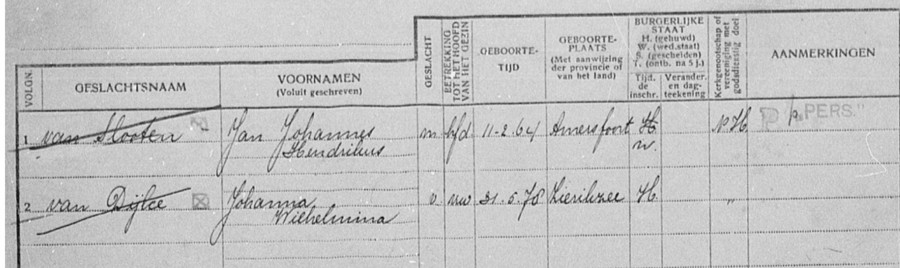 VOLGN.
GESLACHTSNAAM
VOORNAMEN
(Voluit geschreven)
GESLACHT
BETREKKING
TOT HET HOOFD
VAN HET GEZIN
GEBOORTE-
TIJD
GEBOORTE-
PLAATS
(Met aanwijzing
der provincie of
van het land)
BURGERLIJKE
STAAT
H. (gehuwd)
W. (wed.staat)
S. (gescheiden)
?. (ontb. na 5 j.)
Tijd.
de
inschr.
Verander.
en dag-
teekening
Kerkgenootschap of
vereeniging met
godsdienstig doel
AANMERKINGEN
1 van Slooten Jan Johannes m hfd 11-2.64 Amersfoort H. N.H. P. „PERS."
Hendrikus w.
2 van Dijke Johanna v vw 21.5.78 Zierikzee H. "
Wilhelmina